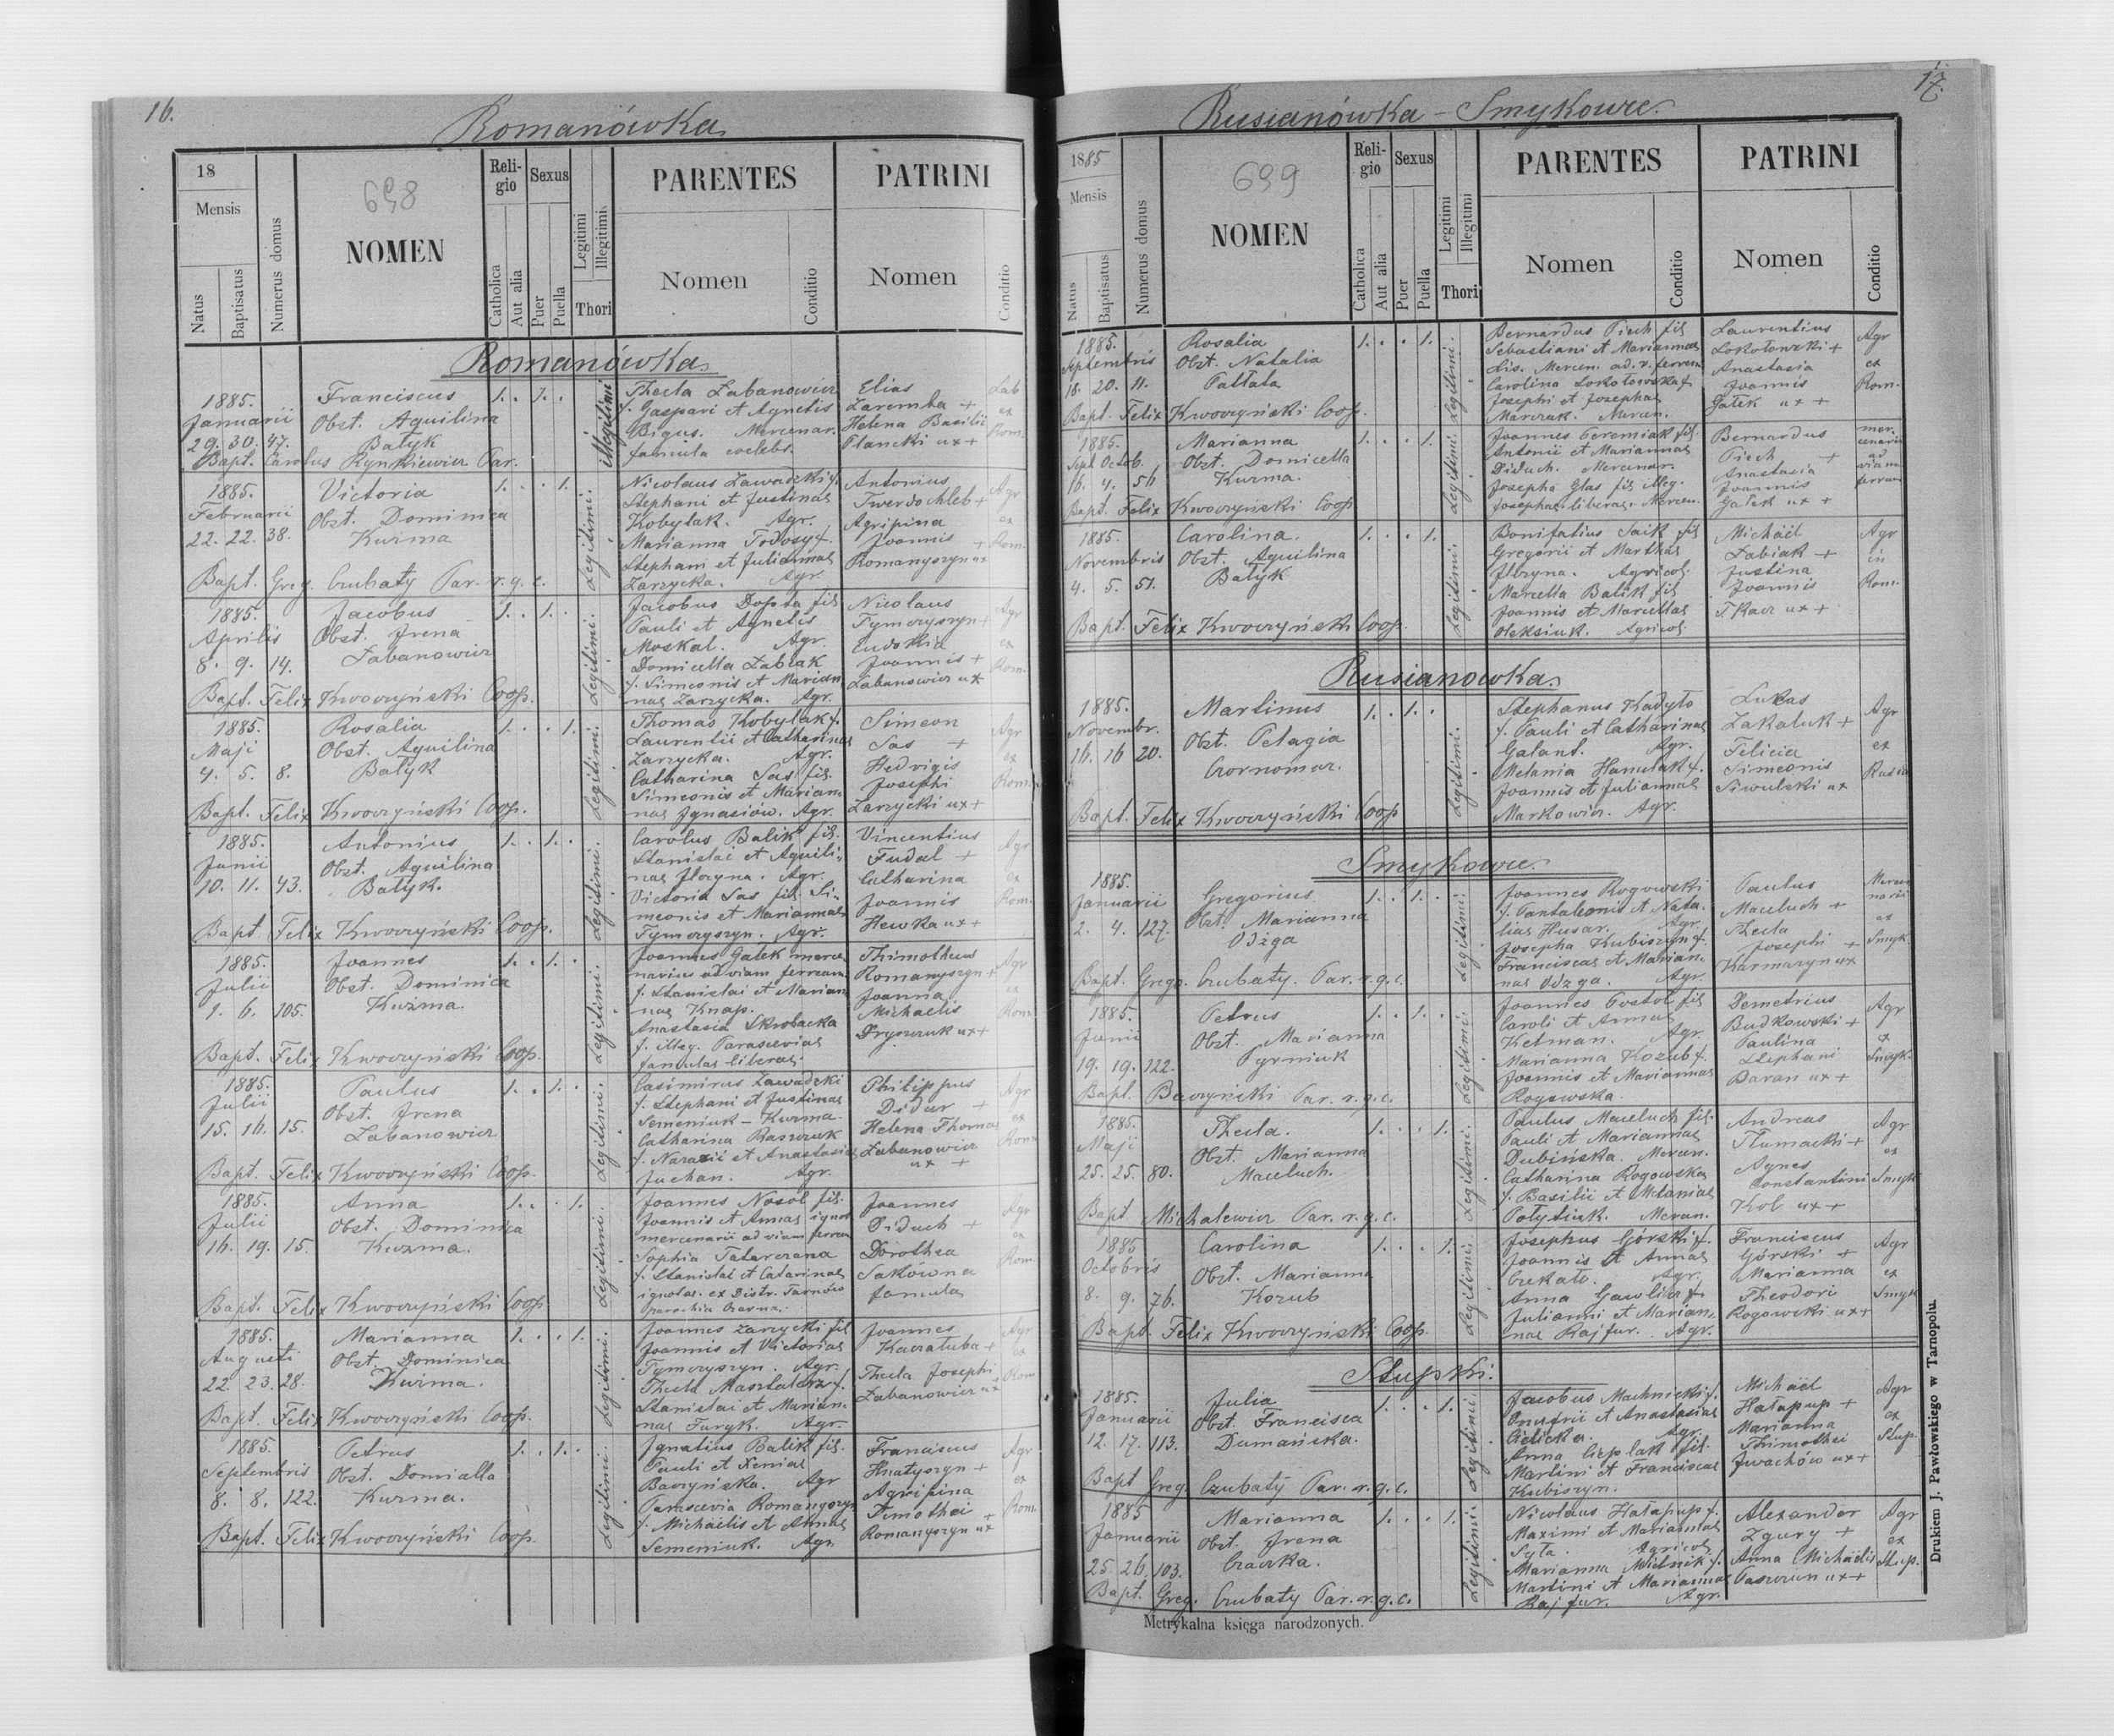 16.
Romanówka
18
Mensis
Natus
Baptisatus
Numerus domus
698
NOMEN
Reli-
gio
Catholica
Aut alia
Sexus
Puer
Puella
Legitimi
Illegitimi
Thori
PARENTES
Nomen
Conditio
PATRINI
Nomen
Conditio
Romanówka.
1885.
Januarii
29. 30. 47.
Franciscus
Obst. Aquilina
Batyk
Bapt. Carolus Rynkiewicz Par.
1. . 1. .
illegitimi
Thecla Labanowicz
f. Gaspari et Agnetis
Bigus. Mercenar.
famula coelebs.
Elias
Zaremba +
Helena Basilii
Plancki ux +
Lab
ex
Rom.
1885.
Februarii
22. 22. 38.
Victoria
Obst. Dominica
Kuzma
Bapt. Greg. Czubaty Par. r. g. c.
1. . . 1.
Legitimi.
Nicolaus Zawadzki f.
Stephani et Justinae
Kobylak. Agr.
Marianna Fodosy f.
Stephani et Juliannae
Zarzycka. Agr.
Antonius
Twerdochleb +
Agripina
Joannis +
Romanyszyn ux
Agr
ex
Rom.
1885.
Aprilis
8. 9. 14.
Jacobus
Obst. Irena
Labanowicz
Bapt. Felix Kwoczyński Coop.
1. . 1. .
Legitimi.
Jacobus Dopta fil
Pauli et Agnetis
Moskal. Agr.
Domicella Labiak
f. Simeonis et Marian
nae Zarzycka. Agr.
Nicolaus
Tymczyszyn +
Eudokia
Joannis +
Labanowicz ux
Agr
ex
Rom.
1885.
Maji
4. 5. 8.
Rosalia
Obst. Aquilina
Batyk
Bapt. Felix Kwoczyński Coop.
1. . . 1.
Legitimi.
Thomas Kobylak f.
Laurentii et Catharinae
Zarzycka. Agr.
Catharina Sas fil.
Simeonis et Marian
nae Ignasiów. Agr.
Simeon
Sas +
Hedvigis
Josephi
Zarzycki ux +
Agr
ex
Rom.
1885.
Junii
10. 11. 43.
Antonius
Obst. Aquilina
Batyk.
Bapt Felix Kwoczyński Coop.
1. . 1. .
Legitimi.
Carolus Balik fil.
Stanislai et Aquili-
nae Ilczyna. Agr.
Victoria Sas fil. Si-
meonis et Mariannae
Tymczyszyn. Agr.
Vincentius
Fudal +
Catharina
Joannis
Hewka ux +
Agr
ex
Rom.
1885.
Julii
1. 6. 105.
Joannes
Obst. Dominica
Kuzma.
Bapt. Felix Kwoczyński Coop.
1. . 1. .
Legitimi.
Joannes Gatek merce
narius ad viam ferream
f. Stanislai et Marian
nae Knap.
Anastasia Skrobacka
f. illeg. Parasceviae
famulae liberae.
Thimotheus
Romanyszyn +
Joanna
Michaelis
Dryszczuk ux +
Agr
ex
Rom
1885.
Julii
15. 16. 15.
Paulus
Obst. Irena
Labanowicz
Bapt. Felix Kwoczyński Coop.
1. . 1. .
Legitimi.
Casimirus Zawadzki
f. Stephani et Justinae
Semeniuk - Kuzma.
Catharina Raszczuk
f. Narazii et Anastasiae
Juchan. Agr.
Philippus
Didur +
Helena Thomae
Labanowicz
ux +
Agr
ex
Rom
1885.
Julii
16. 19. 15.
Anna
Obst. Dominica
Kuzma.
Bapt. Felix Kwoczyński Coop
1. . . 1.
Legitimi.
Joannes Nosol fil.
Joannis et Annae ignot
mercenarii ad viam ferream
Sophia Tatarczana
f. Stanislai et Catarinae
ignotae. ex Distr. Tarnów
parochia Czarna.
Joannes
Diduch +
Dorothea
Saków na
famula
Agr
ex
Rom.
1885.
Augusti
22. 23. 28.
Marianna
Obst. Dominica
Kuzma.
Bapt. Felix Kwoczyński Coop.
1. . . 1.
Legitimi.
Joannes Zarzycki fil
Joannis et Victoriae
Tymczyszyn. Agr.
Thecla Masztalerz f.
Stanislai et Marian
nae Furyk. Agr.
Joannes
Kaczatuba +
Thecla Josephi
Labanowicz ux
Agr
ex
Rom
1885.
Septembris
8. 8. 122.
Petrus
Obst. Domialla
Kuzma.
Bapt. Felix Kwoczyński Coop.
1. . 1. .
Legitimi.
Ignatius Balik fil.
Pauli et Xeniae
Baczyńska. Agr
Parascevia Romanyszyn
f. Michaelis et Annae
Semeniuk. Agr.
Franciscus
Hnatyszyn +
Agripina
Timothei +
Romanyszyn ux
Agr
ex
Rom.
17.
Rusianówka - Smykowce.
1885
Mensis
Natus
Baptisatus
Numerus domus
699
NOMEN
Reli-
gio
Catholica
Aut alia
Sexus
Puer
Puella
Legitimi
Illegitimi
Thori
PARENTES
Nomen
Conditio
PATRINI
Nomen
Conditio
1885.
Septembris
18. 20. 11.
Rosalia
Obst. Natalia
Pattata
Bapt. Felix Kwoczyński Coop.
1. . . 1.
Legitimi.
Bernardus Piech fil
Sebastiani et Mariannae
Lis. Mercen. ad. v. ferream
Carolina Sokołowska f.
Josephi et Josephae
Marczak. Mercen.
Laurentius
Sokołowski +
Anastasia
Joannis
Gatek ux +
Agr
ex
Rom.
1885.
Sept. Octob.
16. 4. 56.
Marianna
Obst. Domicella
Kuzma.
Bapt. Felix Kwoczyński Coop
1. . . 1.
Legitimi.
Joannes Ceremiak fil.
Antonii et Mariannae
Diduch. Mercenar.
Josepha Glas fil illeg.
Josephae liberae. Mercen.
Bernardus
Piech +
Anastasia
Joannis
Gatek ux +
mer-
cenarii
ad
viam
ferream
1885.
Novembris
4. 5. 51.
Carolina.
Obst. Aquilina
Batyk
Bapt. Felix Kwoczyński Coop.
1. . . 1.
Legitimi.
Bonifatius Saik fil
Gregorii et Marthae
Ilczyna. Agricol.
Marcella Balik fil
Joannis et Marcellae
Oleksiuk. Agricol.
Michaël
Labiak +
Justina
Joannis
Tkacz ux +
Agr
in
Rom.
Rusianowka.
1885.
Novembr.
16. 16 20.
Martinus
Obst. Pelagia
Czornomaz.
Bapt. Felix Kwoczyński Coop
1. . 1. .
Legitimi.
Stephanus Kadyło
f. Pauli et Catharinae
Galant. Agr.
Melania Hanulak f.
Joannis et Juliannae
Markowicz. Agr.
Lukas
Zakaluk +
Felicia
Simeonis
Siwulski ux
Agr
ex
Rusia
Smykowce.
1885.
Januarii
2. 4. 127.
Gregorius
Obst. Marianna
Odżga
Bapt. Grego. Czubaty. Par. r. g. c.
1. . 1. .
Legitimi.
Joannes Rogowski
f. Pantaleonis et Nata
liae Husar. Agr.
Josepha Kubiszyn f.
Franciscae et Marian
nae Odzga. Agr.
Paulus
Maceluch +
Thecla
Josephi +
Karmazyn ux
Mercen
narii
ex
Smyk
1885.
Junii
19. 19. 122.
Petrus
Obst. Marianna
Pyrniuk
Bapt. Baczyński Par. r. g. c.
1. . 1. .
Legitimi.
Joannes Postol fil
Caroli et Annae
Ketman. Agr.
Marianna Kozub f.
Joannis et Mariannae
Rogowska.
Demetrius
Budkowski +
Paulina
Stephani
Baran ux +
Agr
ex
Smyk.
1885.
Maji
25. 25. 80.
Thecla.
Obst. Marianna
Maceluch.
Bapt Michalewicz Par. r. g. c.
1. . . 1.
Legitimi.
Paulus Maceluch fil.
Pauli et Mariannae
Dubińska. Mercen.
Catharina Rogowska
f. Basilii et Melaniae
Połytiuk. Mercen.
Andreas
Tlumacki +
Agnes
Constantini
Kol ux +
Agr
ex
Smyk
1885
Octobris
8. 9. 76.
Carolina
Obst. Marianna
Kozub
Bapt. Felix Kwoczyński Coop.
1. . . 1.
Legitimi.
Josephus Górski f.
Joannis et Annae
Czekało. Agr.
Anna Gawlicz f.
Julianni et Marian
nae Rajfur. Agr.
Franciscus
Górski +
Marianna
Theodori
Rogowski ux +
Agr
ex
Smyk
Stupki.
1885.
Januarii
12. 17. 113.
Julia
Obst. Francisca
Dumańska.
Bapt Greg. Czubaty Par. r. g. c.
1. . . 1.
Legitimi.
Jacobus Machnicki f.
Onufrii et Anastasiae
Cielicka. Agr.
Anna Cieplak fil.
Martini et Franciscae
Kubiszyn.
Michaël
Hałapup +
Marianna
Thimothei
Iwachów ux +
Agr
ex
Stup.
1885
Januarii
25. 26. 103.
Marianna
Obst. Irena
Czaczka.
Bapt. Greg. Czubaty Par. r. g. c.
1. . . 1.
Legitimi.
Nicolaus Hałapup f.
Maximi et Mariannae
Syta. Agricol
Marianna Mielnik f.
Martini et Mariannae
Rajfur. Agr.
Alexander
Zgury +
Anna Michaëlis
Paszczun ux +
Agr
ex
Stup.
Metrykalna księga narodzonych.
Drukiem J. Pawłowskiego w Tarnopolu.